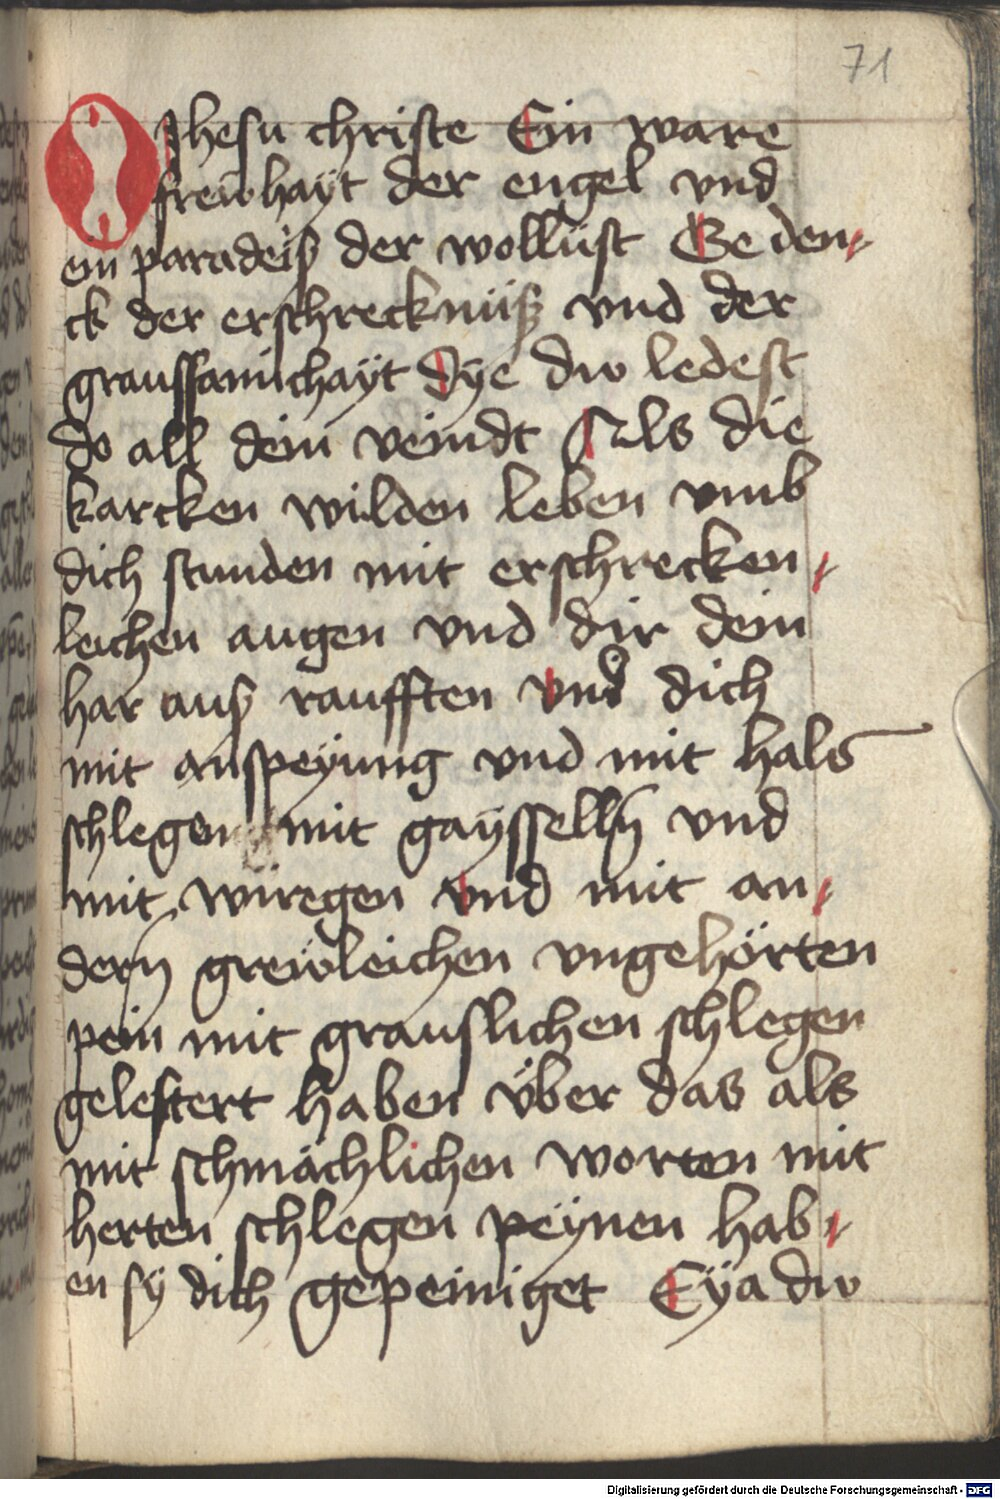 71
O Jhesu christe Ein ware
freẅhaÿt der engel vnd
ein paradeiß der wollust Geden-
ck der erschrecknüß vnd der
graussamichaÿt Dÿe dw ledest
do all dein veindt Als die
karcken wilden leben vmb
dich stunden mit erschrecken-
leichen augen vnd dir dein
har auß raufften vnd dich
mit anspeÿung vnd mit hals
schlegen mit gaÿsselln̄ vnd
mit würegen vnd mit an-
dern̄ greẅleichen vngehörten
pein mit grauslichen schlegen
gelestert haben über das als
mit schmächlichen worten mit
herten schlegen peÿnen hab-
en sÿ dich gepeiniget Eÿa dw
Digitalisierung gefördert durch die Deutsche Forschungsgemeinschaft - DFG